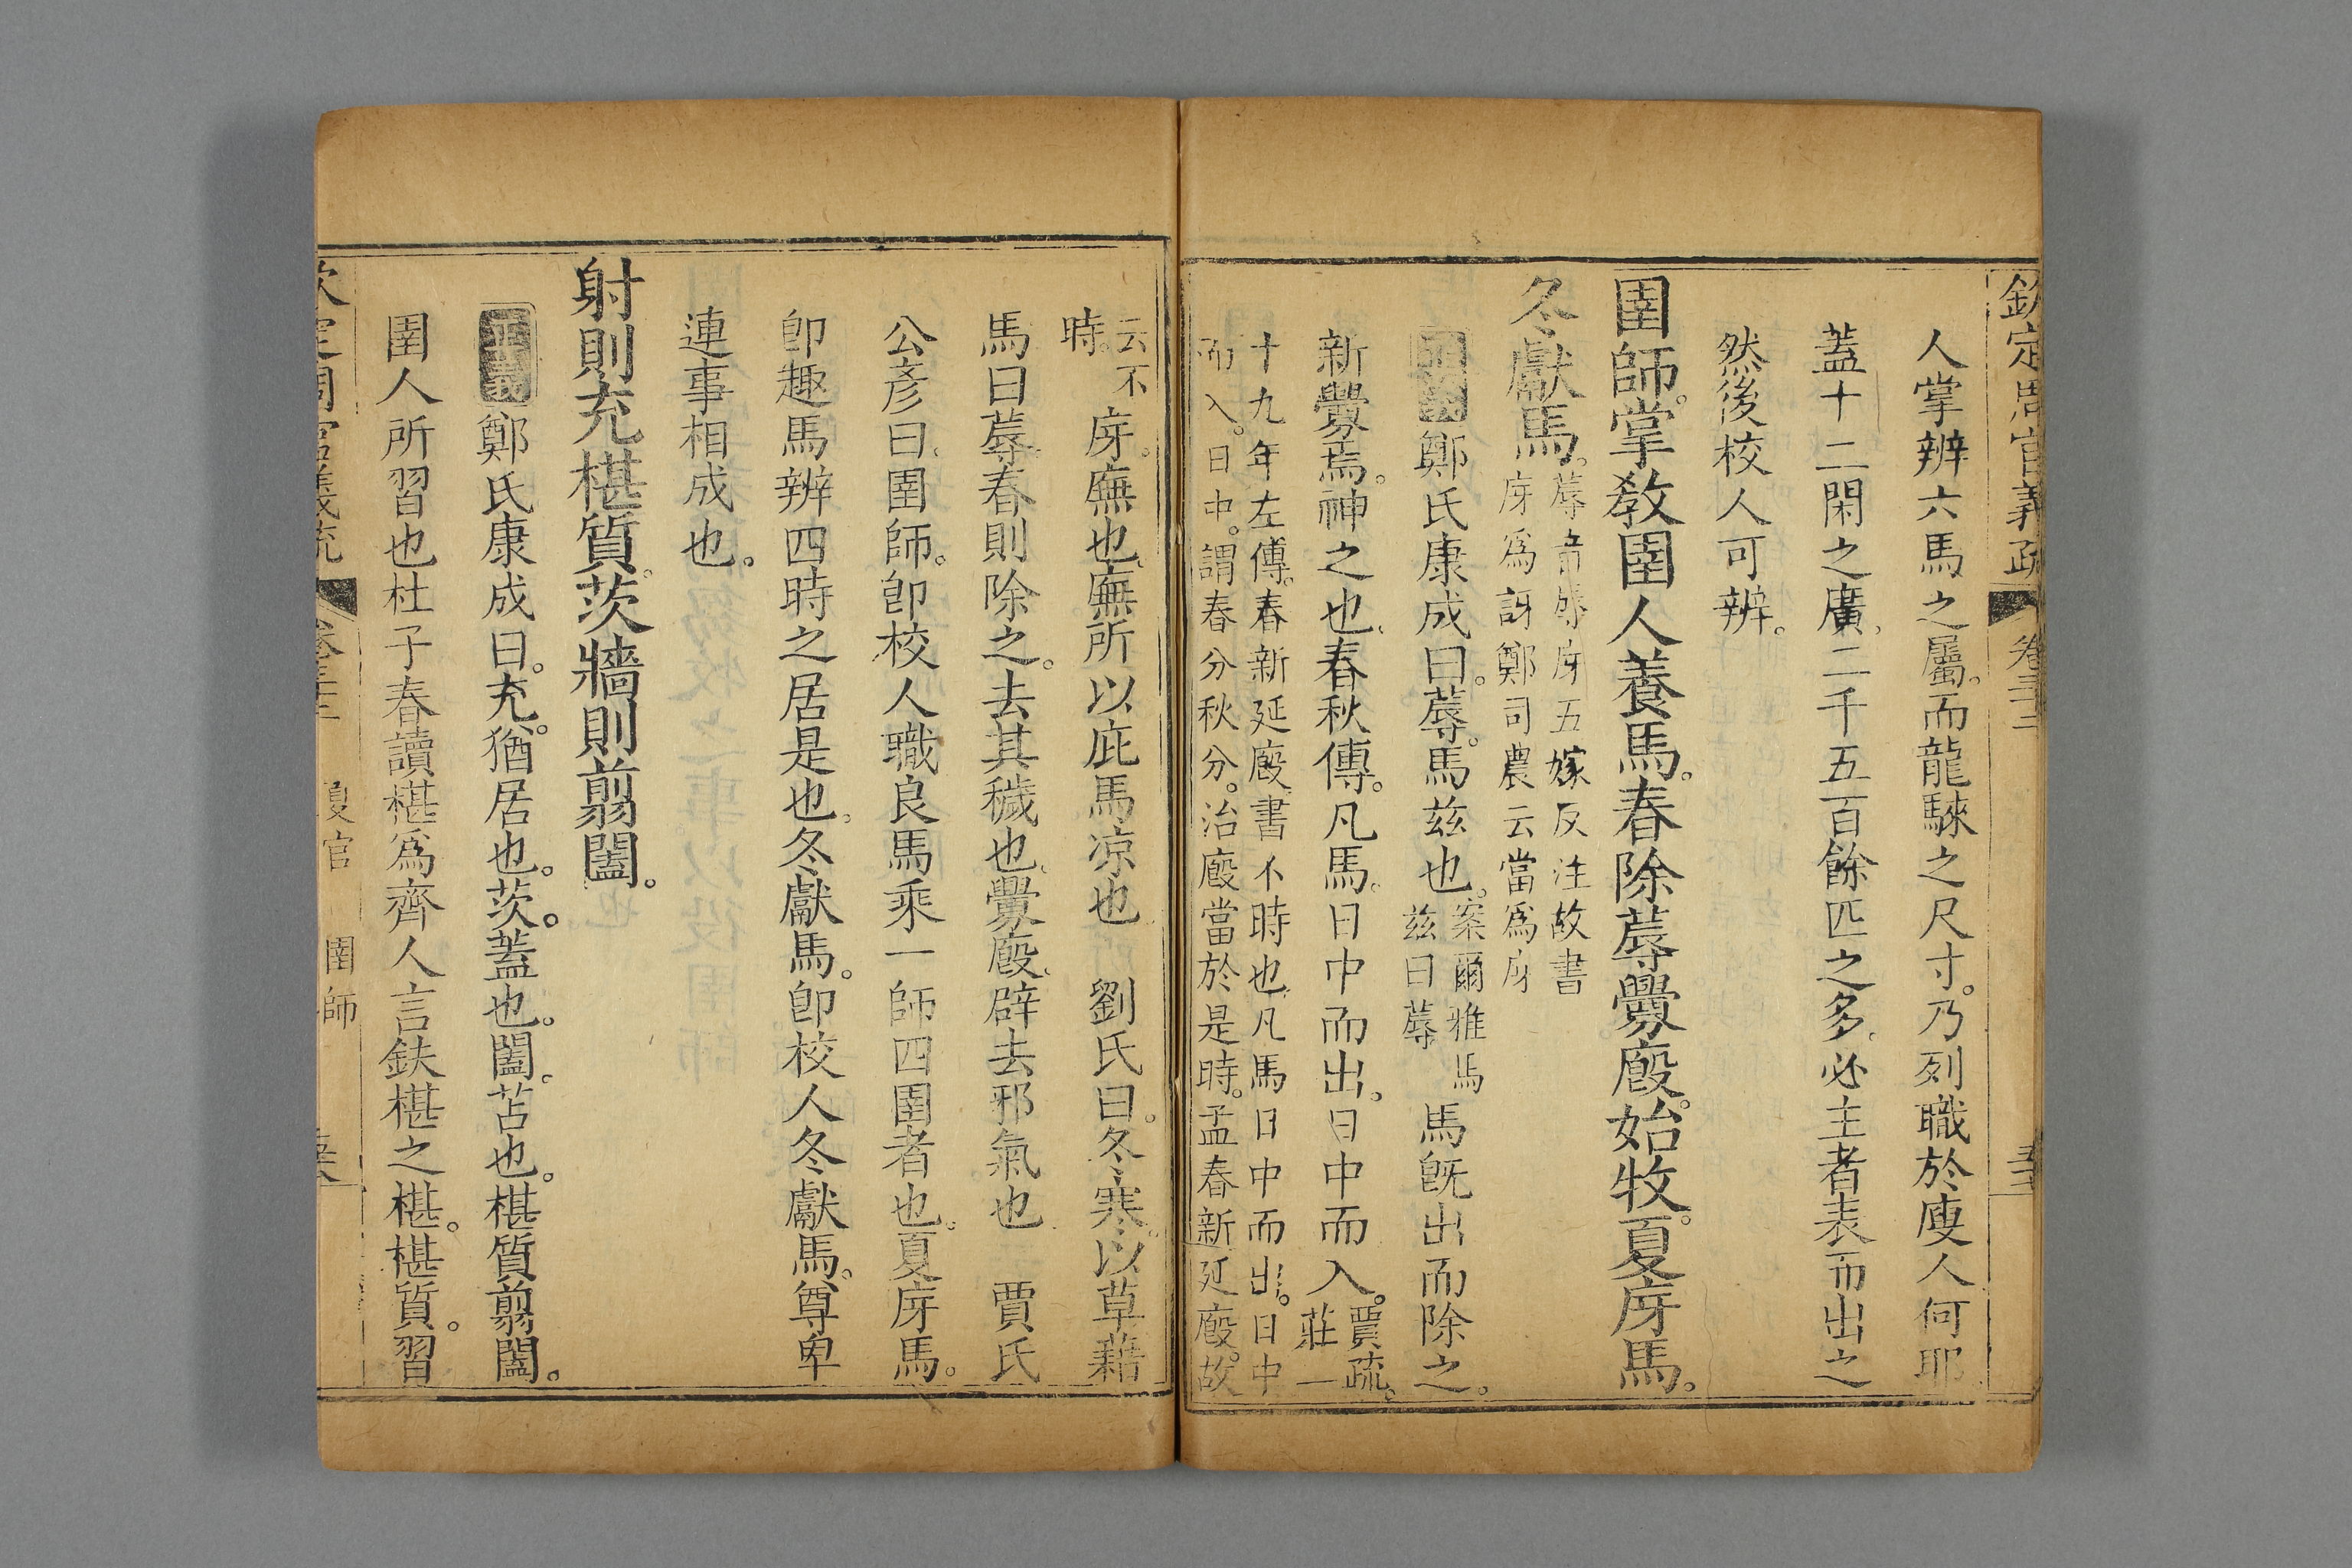 欽定周官義疏 卷三十三
人掌辨六馬之屬。而龍騋之尺寸。乃列職於廋人何耶
蓋十二閑之廣。二千五百餘匹之多。必主者表而出之
然後校人可辨。
圉師。掌敎圉人養馬。春除蓐釁廄。始牧。夏庌馬。
冬獻馬。
蓐音辱庌五嫁反注故書
庌爲訝鄭司農云當爲庌
正義鄭氏康成曰。蓐。馬兹也。
案爾雅馬
兹曰蓐
馬旣出而除之。
新釁焉。神之也。春秋傳。凡馬。日中而出。日中而入。
賈疏。
莊一
十九年左傳。春新延廄。書不時也。凡馬日中而出。日中
而入。日中。謂春分秋分。治廄當於是時。孟春新延廄。故
云不
時。
庌。廡也。廡所以庇馬凉也 劉氏曰。冬寒。以草藉
馬曰蓐。春則除之。去其穢也。釁廄。辟去邪氣也 賈氏
公彥曰。圉師。卽校人職良馬乘一師四圉者也。夏庌馬。
卽趣馬辨四時之居是也。冬獻馬。卽校人冬獻馬。尊卑
連事相成也。
射則充椹質。茨牆則翦闔。
正義鄭氏康成曰。充。猶居也。茨。蓋也。闔。苫也。椹質翦闔。
圉人所習也杜子春讀椹爲齊人言鈇椹之椹。椹質。習
欽定周官義疏 卷三十三 夏官 圉師